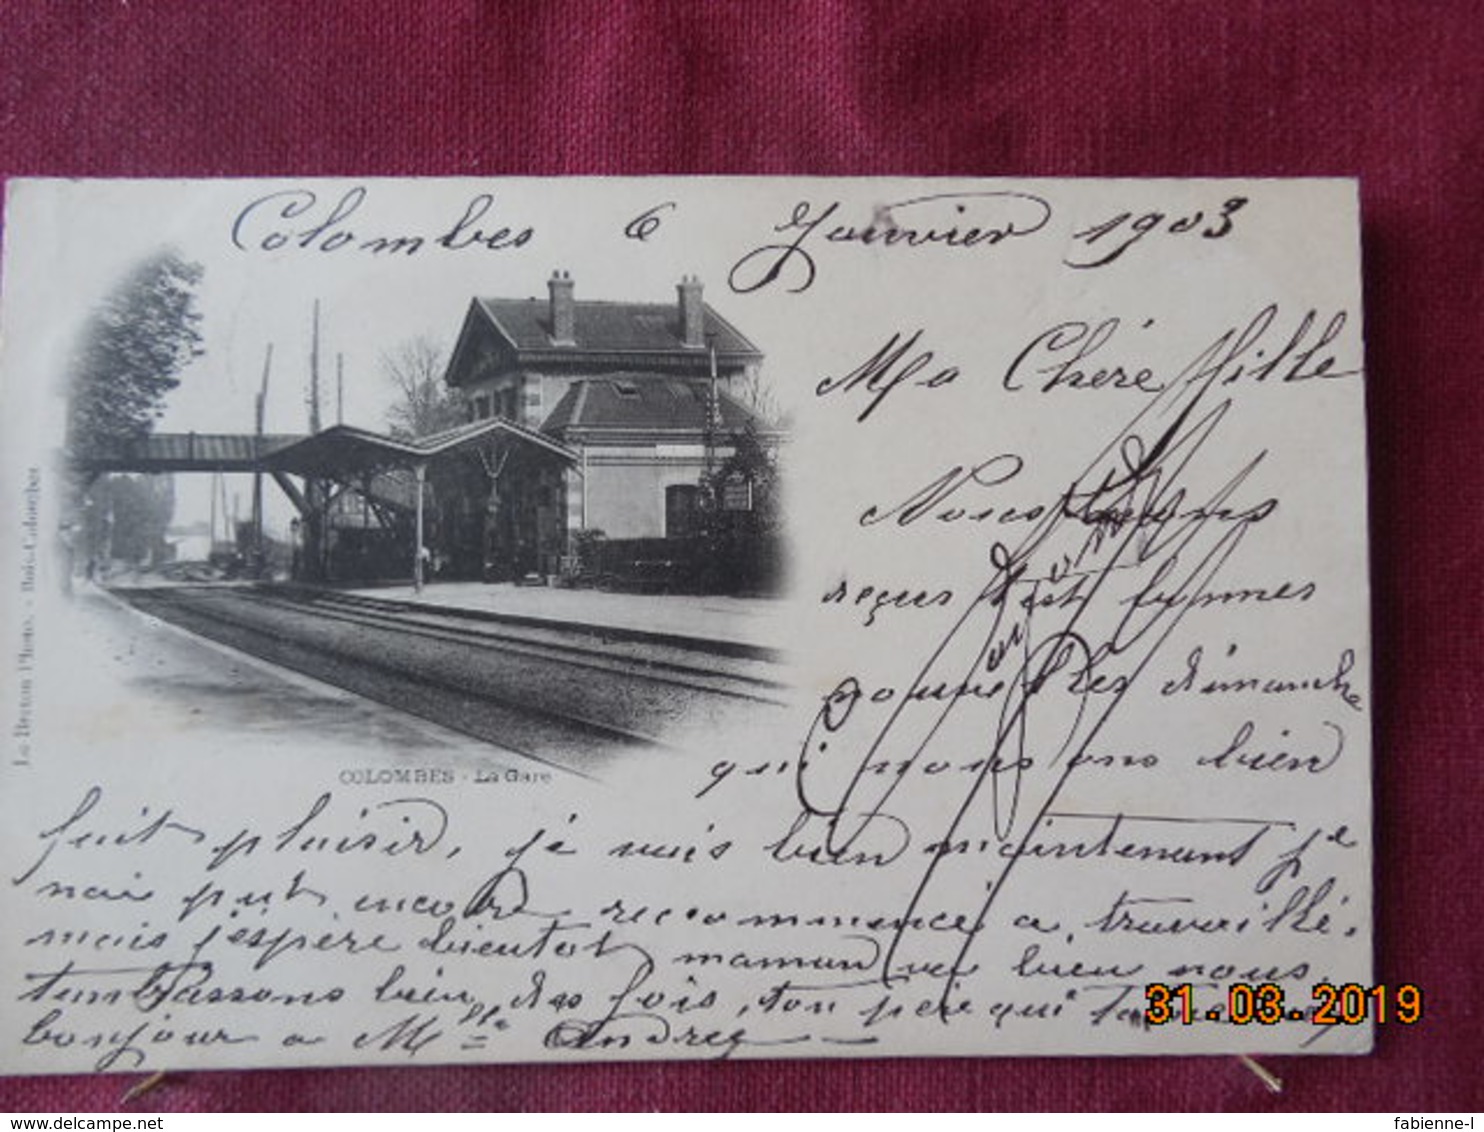 Colombes 6 Janvier 1903
Ma Chère fille
Nous avons
reçus t'est bonnes
nouvelles dimanche
qui nous ons bien
fait plaisir, je vais bien maintenant je
nai put encore recommencé a travaillé.
mais j'éspère bientot maman va bien nous
t'embrassons bien des fois, ton père qui t'aime
bonjour a Mme Andrez
COLOMBES - La Gare
Le Breton Photo. - Bois-Colombes
31.03.2019
delcampe.net
fabienne-l